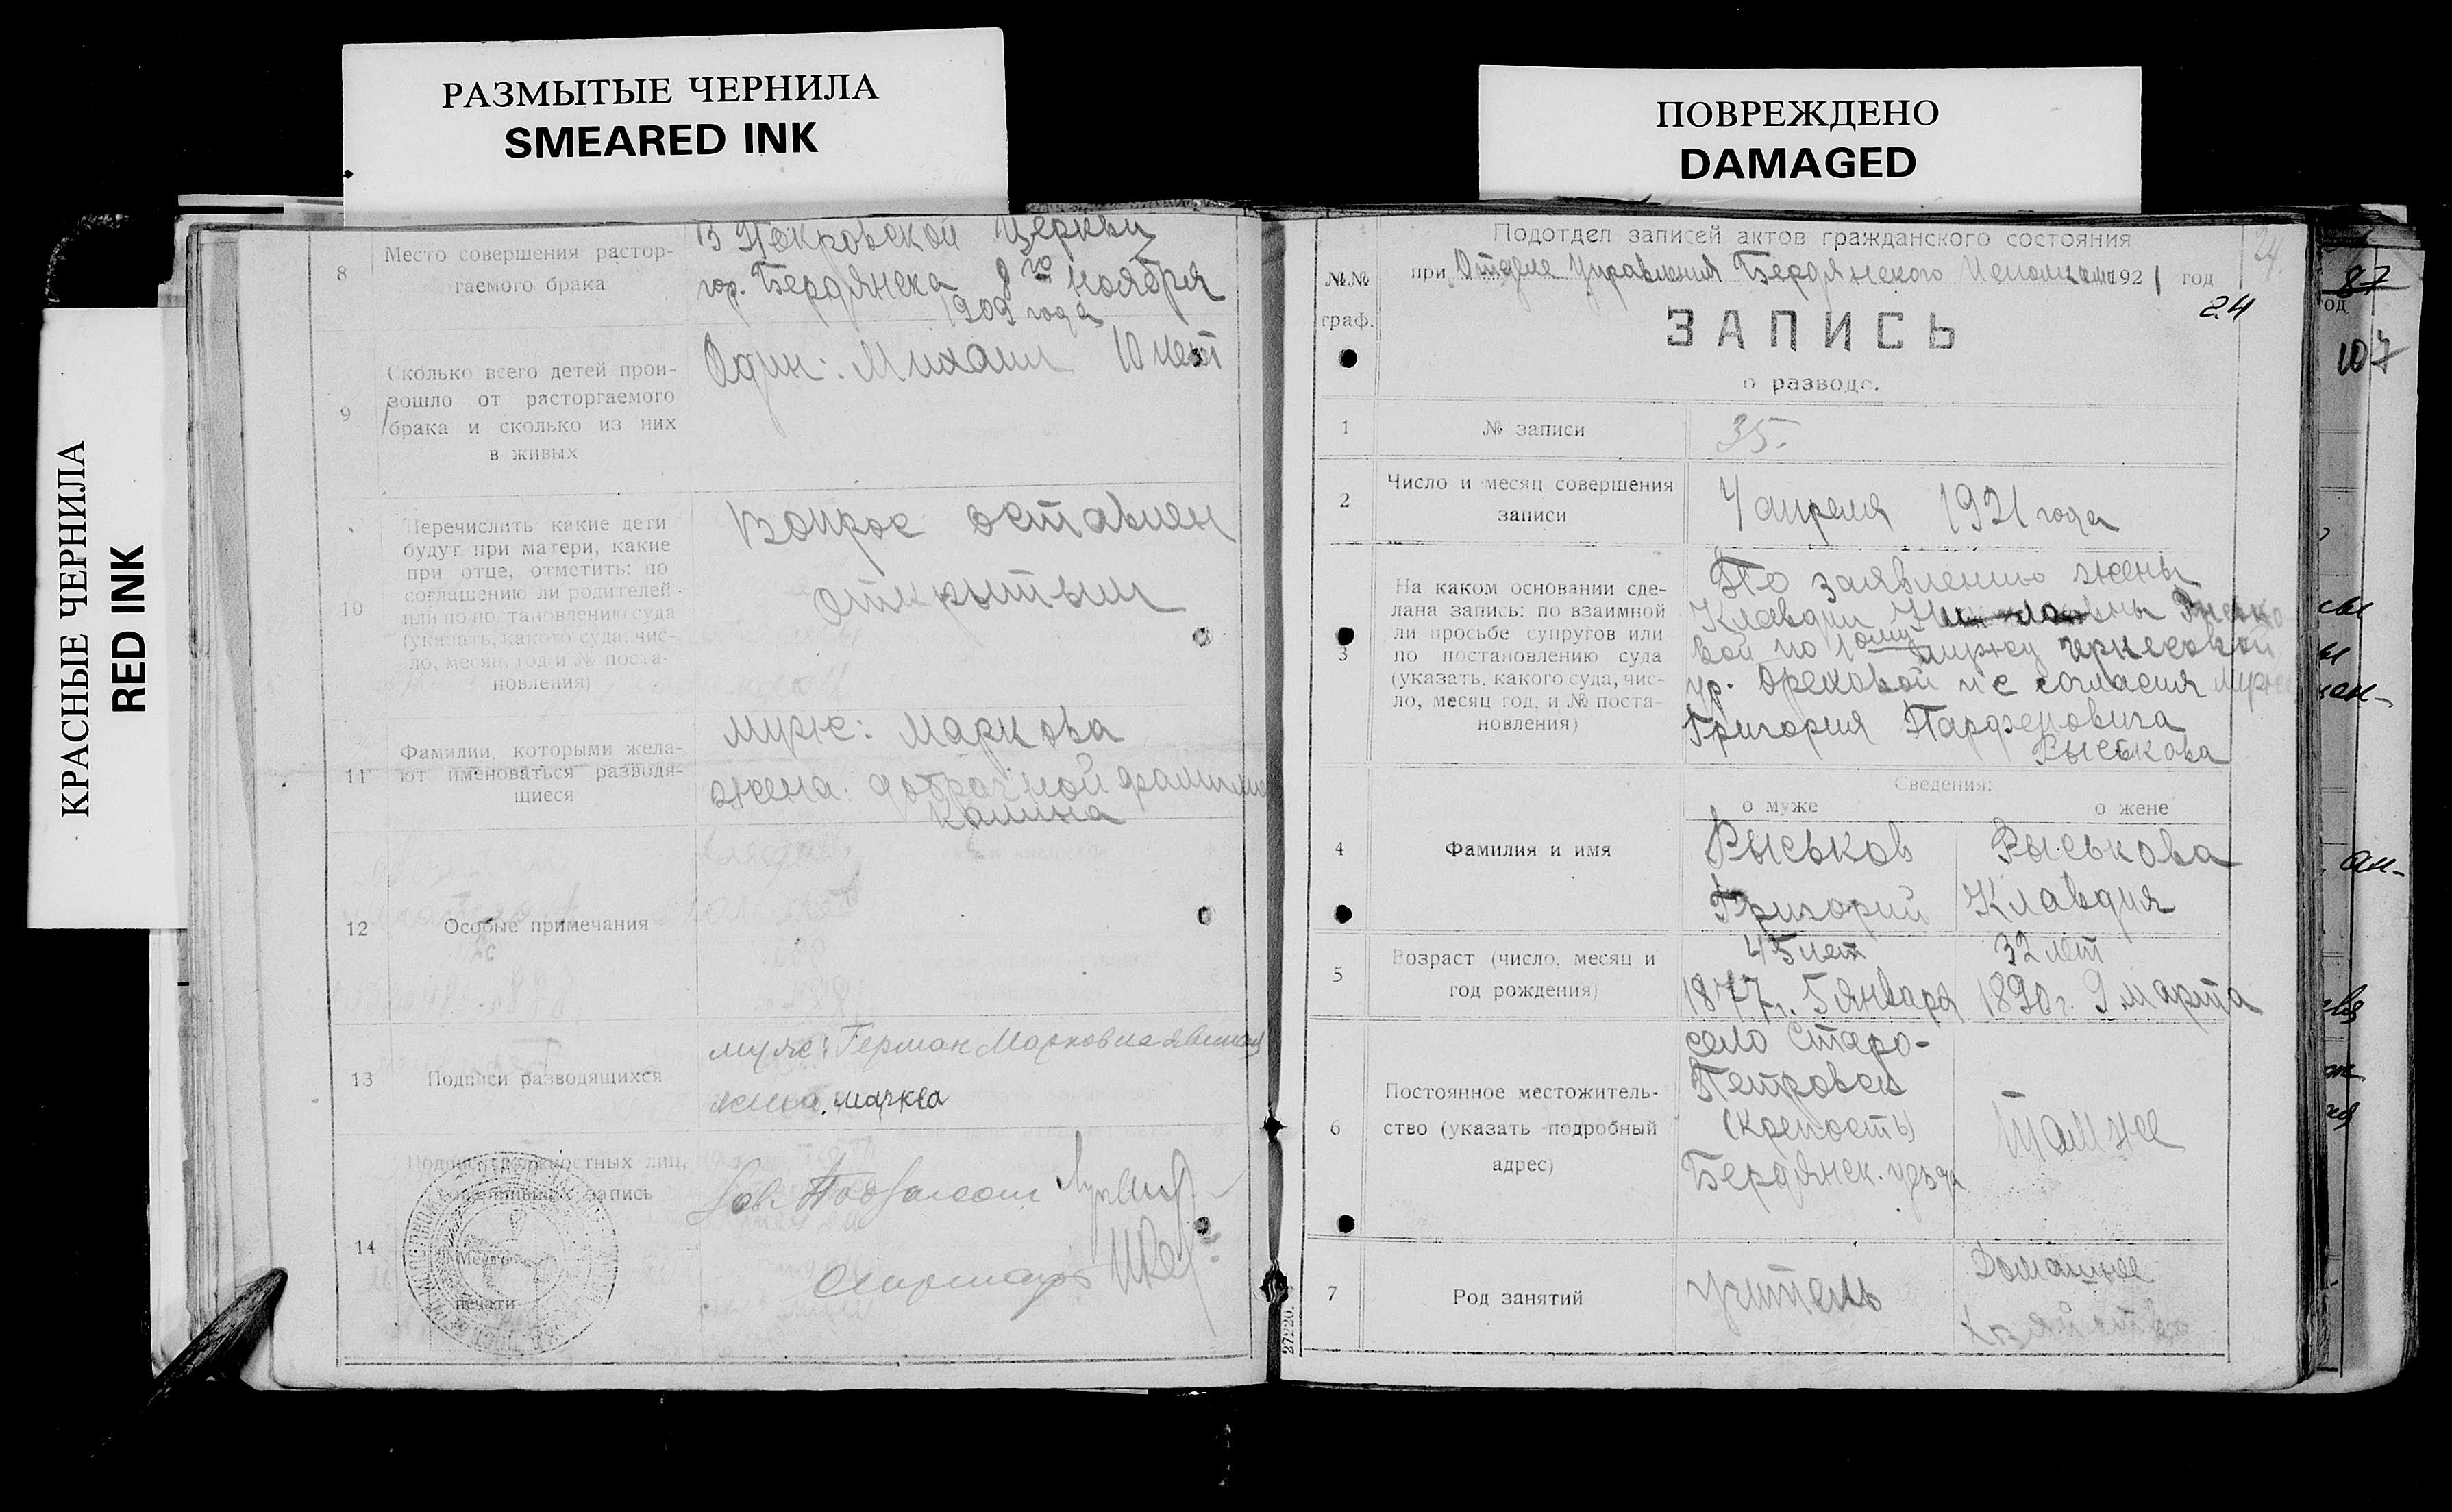 РАЗМЫТЫЕ ЧЕРНИЛА
SMEARED INK
ПОВРЕЖДЕНО
DAMAGED
КРАСНЫЕ ЧЕРНИЛА
RED INK
8
Место совершения растор-
гаемого брака
В Покровской Церкви
гор. Бердянска 9го ноября
1909 года
9
Сколько всего детей прои-
зошло от расторгаемого
брака и сколько из них
в живых
Один: Михаил 10 лет
10
Перечислить какие дети
будут при матери, какие
при отце, отметить: по
соглашению ли родителей
или по постановлению суда
(указать, какого суда, чис-
ло, месяц, год и № поста-
новления)
Вопрос оставлен
открытым
11
Фамилии, которыми жела-
ют именоваться разводя-
щиеся
муж: Маркова
жена: добрачной фамилию
Калина
12
Особые примечания
13
Подписи разводящихся
муж: Герман Марков
жена.
14
Подписи должностных лиц,
совершивших запись
Место
печати
Зав. Подотделом
Секретарь
Подотдел записей актов гражданского состояния
№№
граф.
при Отделе Управления Бердянского Исполкома 1921 год
24
24
ЗАПИСЬ
о разводе.
1
№ записи
35.
2
Число и месяц совершения
записи
4 апреля 1921 года
3
На каком основании сде-
лана запись: по взаимной
ли просьбе супругов или
по постановлению суда
(указать, какого суда, чис-
ло, месяц, год, и № поста-
новления)
По заявлению жены
Клавдии
вой по 1ому мужу
ур. Ореховой и с согласия мужа
Григория Парфеновича
Рыськова
Сведения:
о муже
о жене
4
Фамилия и имя
Рыськов
Григорий
Рыськова
Клавдия
5
Возраст (число, месяц и
год рождения)
45 лет
1877г. 5 января
32 лет
1890г. 9 марта
6
Постоянное местожитель-
ство (указать подробный
адрес)
село Старо-
Петровск
(крепость)
Бердянск. уезда
Там же
7
Род занятий
Учитель
Домашнее
Хозяйство
27220.
87
од
107